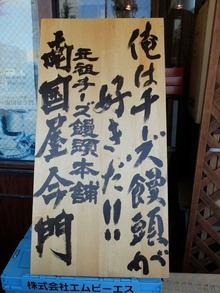 俺はチーズ饅頭が
好きだ!!
元祖チーズ饅頭本舗
南國屋今門
株式会社エムビーエス